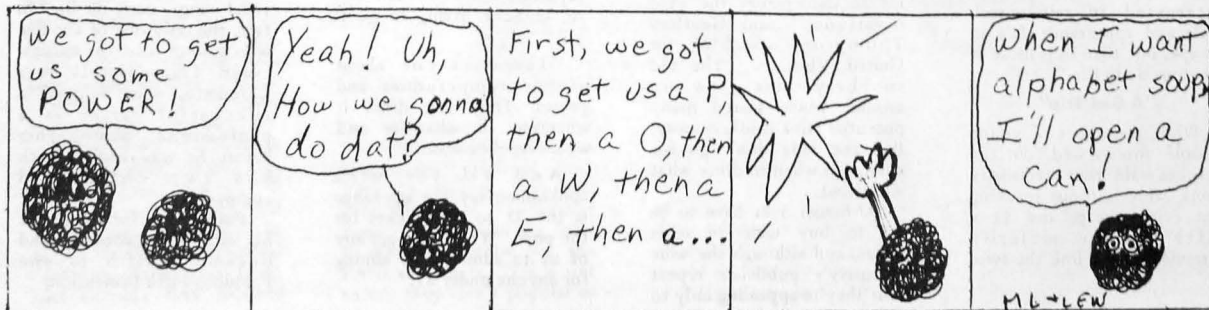 We got to get
us some
POWER!
Yeah! Uh,
How we gonna
do dat?
First, we got
to get us a P
then a O, then
a W, then a
E, then a...
When I want
alphabet soup
I'll open a
can!
ML+LEW